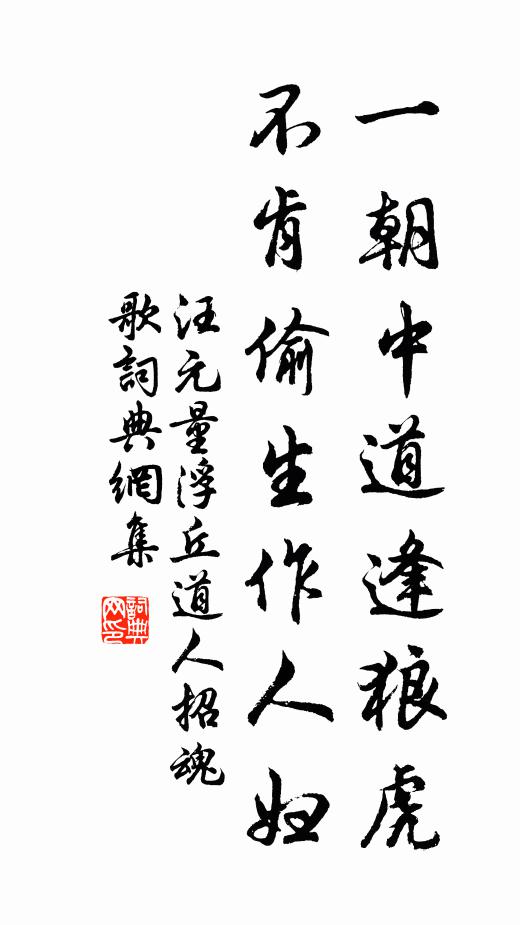 一朝中道逢狼虎
不肯偷生作人妇
汪元量浮丘道人招魂
歌詞典網集
詞典
网印